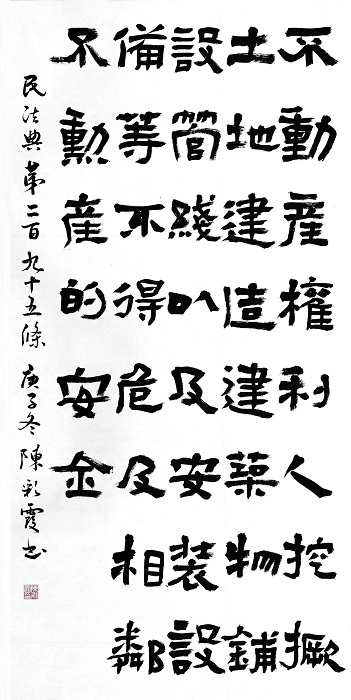 不動產權利人挖撅
土地建造建築物鋪
設管綫以及安裝設
備等不得危及相鄰
不動產的安全
民法典第二百九十五條 庚子冬陳彩霞書